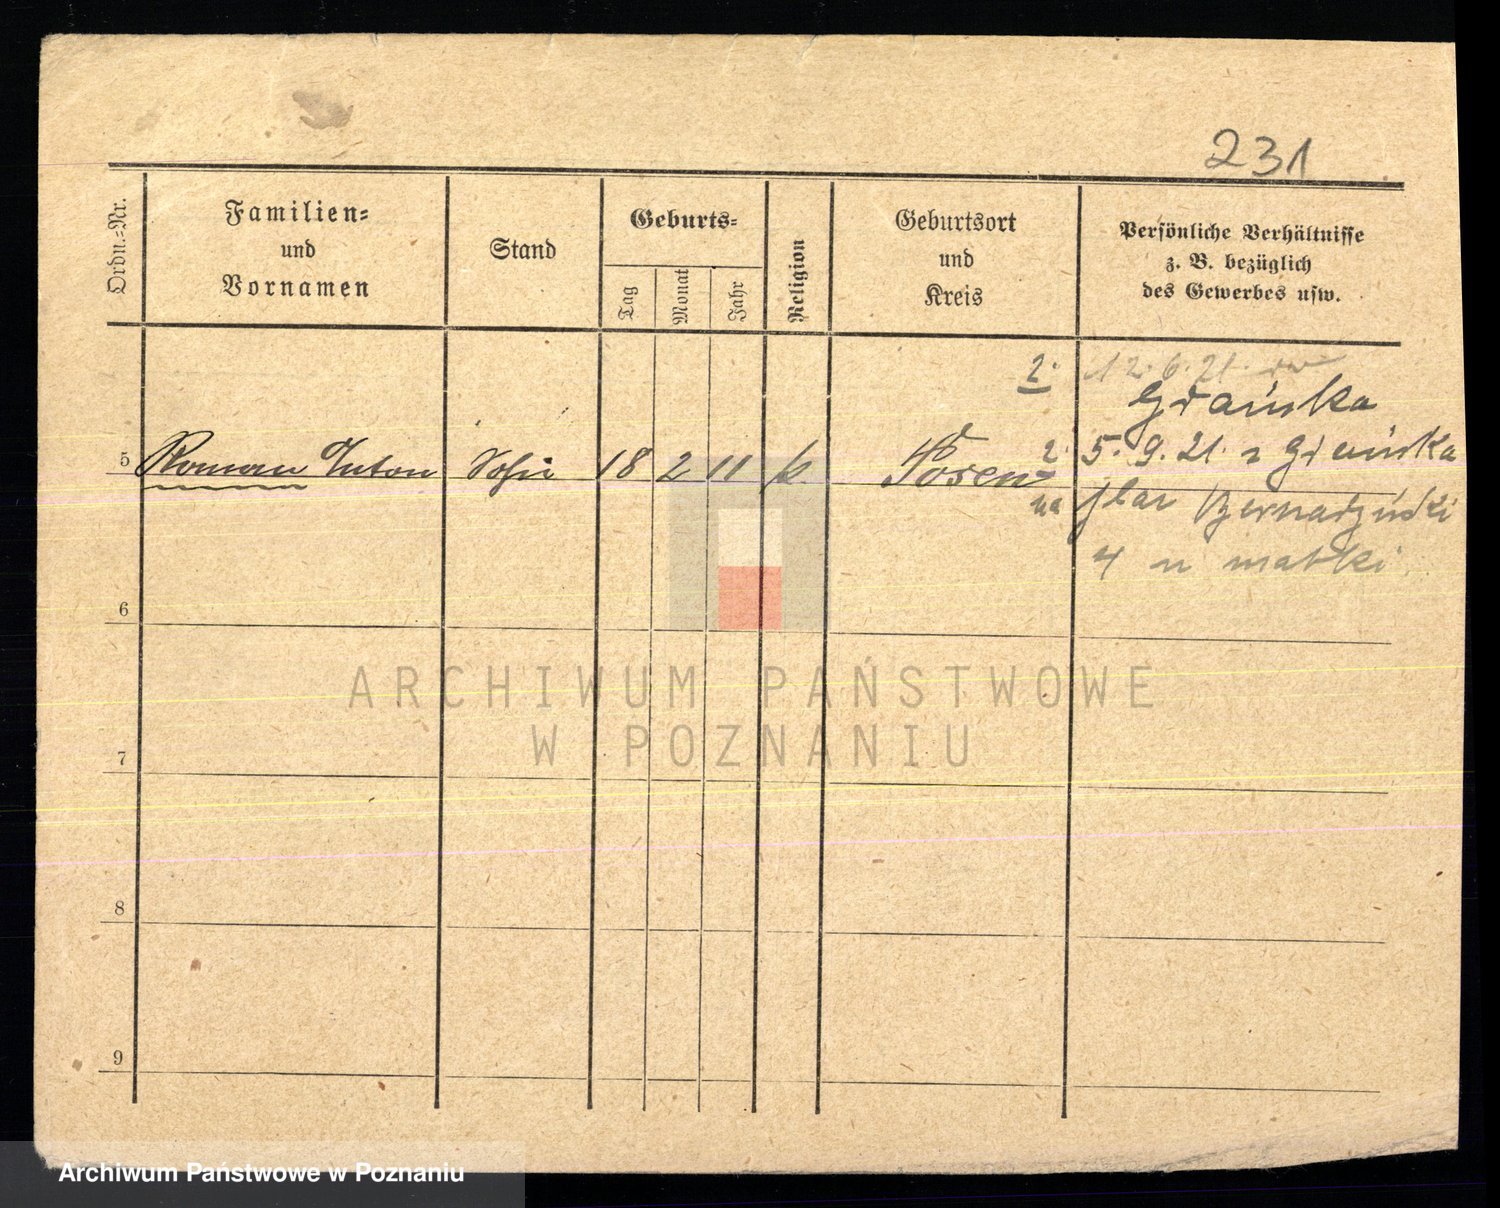 231
Ordn.=Nr.
Familien=
und
Vornamen
Stand
Geburts=
Tag
Monat
Jahr
Religion
Geburtsort
und
Kreis
Persönliche Verhältnisse
z. B. bezüglich
des Gewerbes usw.
2. 12. 6. 21.
Grańska
5 Roman Anton 18 2 11 k. Posen
2. 5. 9. 21. z
na plac Bernadyński
4 u matki.
6
7
8
9
ARCHIWUM PAŃSTWOWE
W POZNANIU
Archiwum Państwowe w Poznaniu